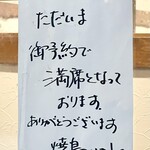 ただいま
御予約で
満席となって
おります。
ありがとうございます
焼鳥